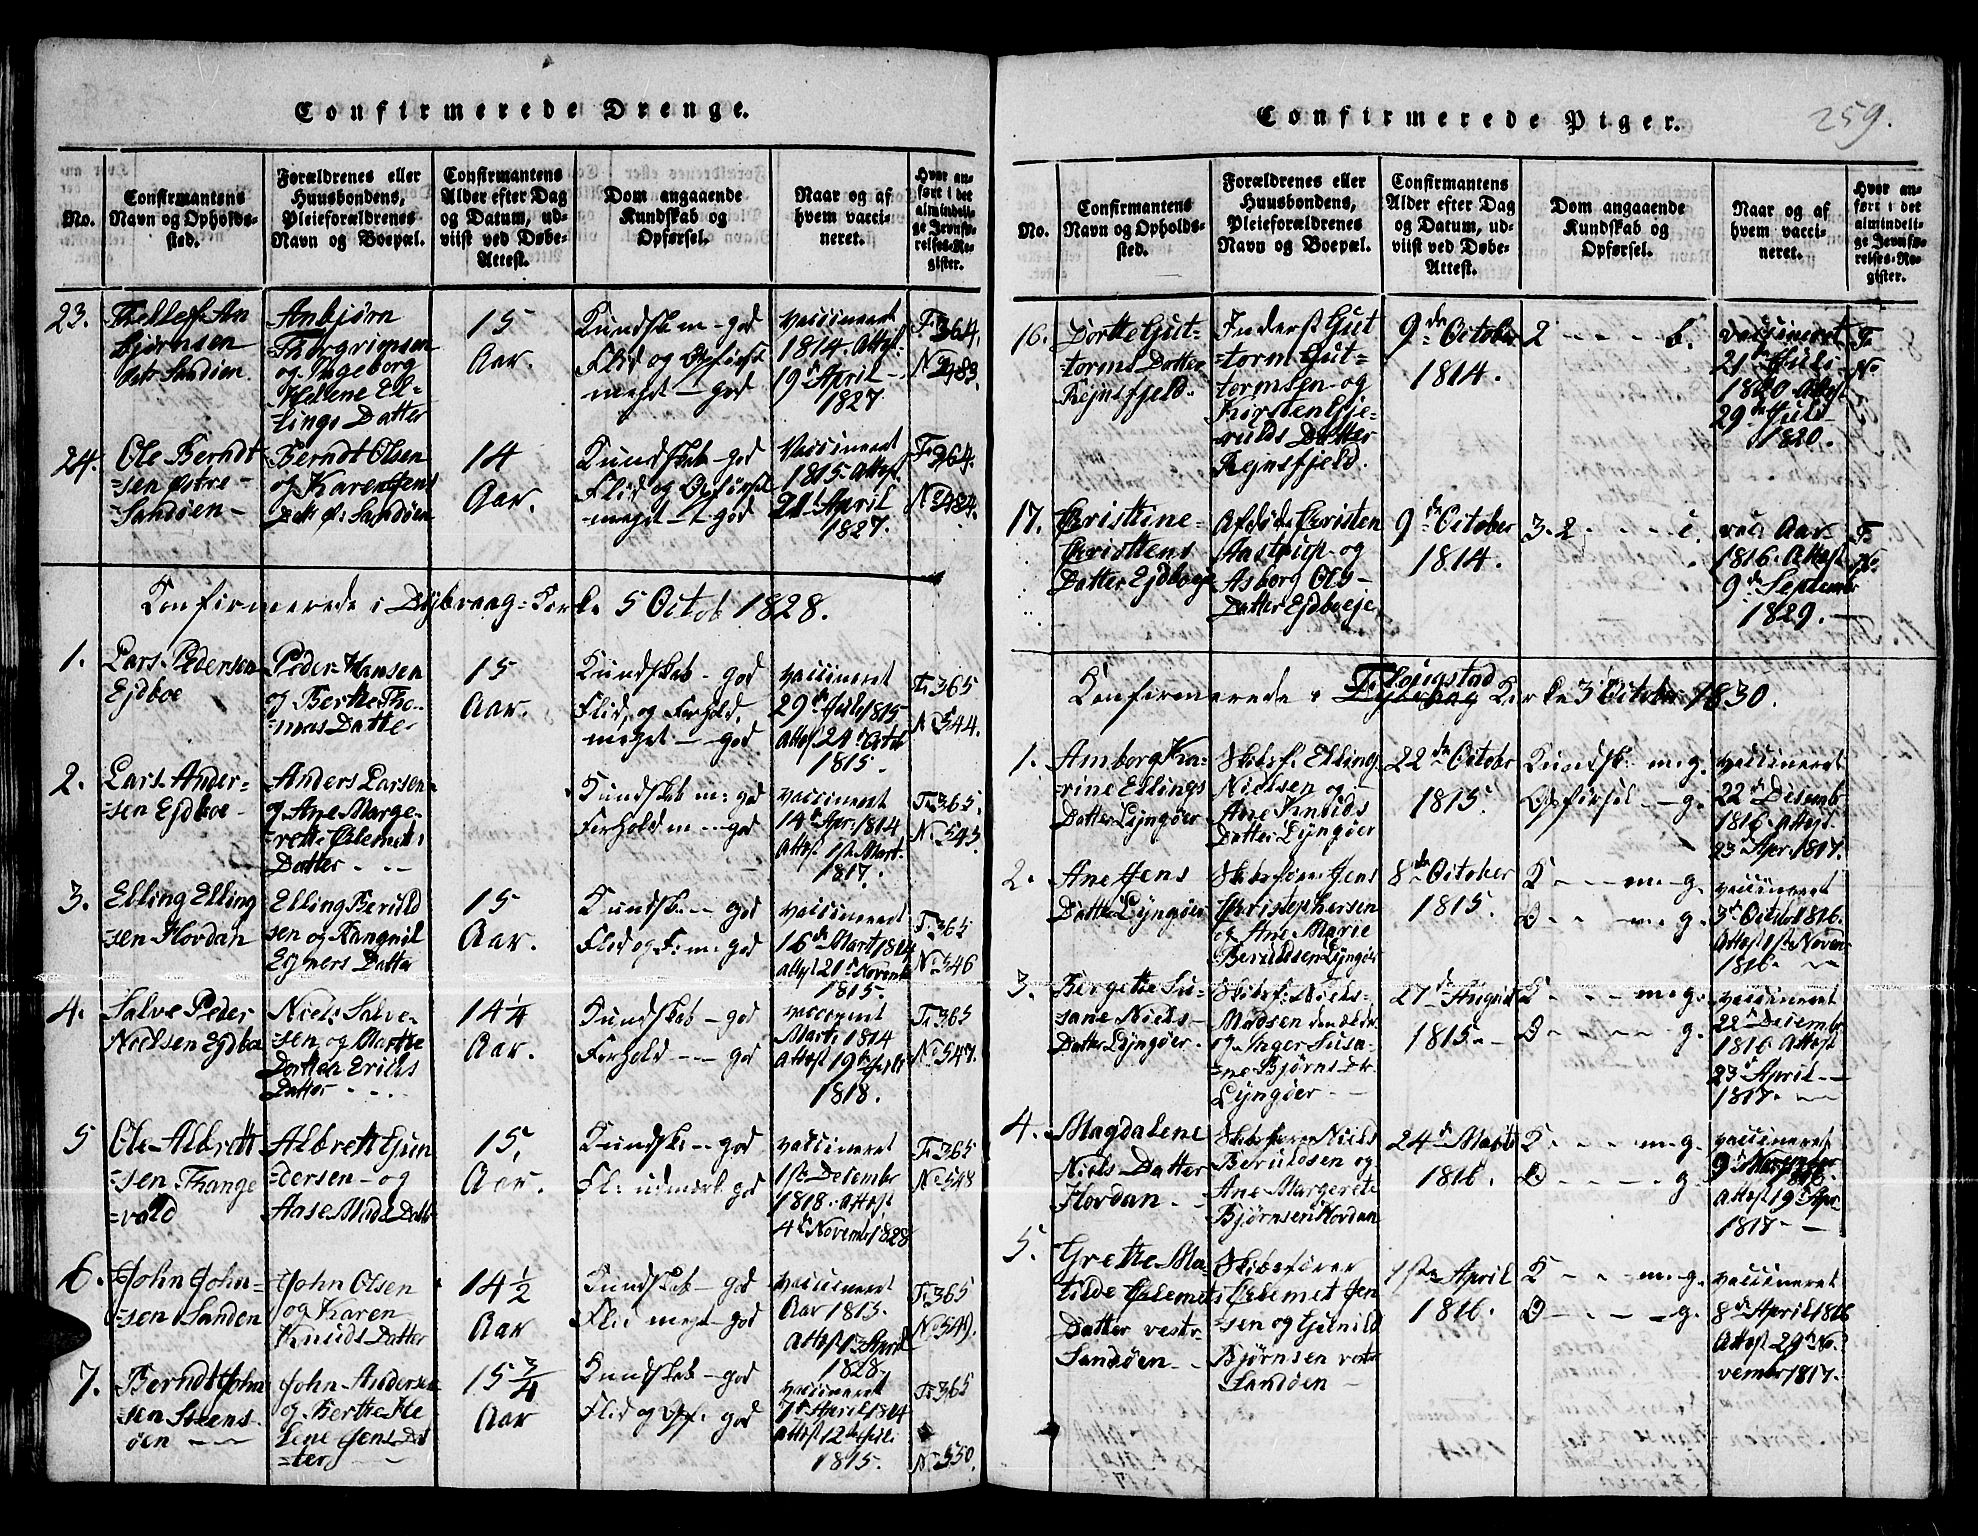 Confirmerede Drenge.
No.
Confirmantens
Navn og Opholds-
sted.
Forældrenes eller
Huusbondens,
Pleieforældrenes
Navn og Boepæl.
Confirmantens
Alder efter Dag
og Datum, ud-
viist ved Døbe-
Attest.
Dom angaaende
Kundskab og
Opførsel.
Naar og af
hvem vacci-
neret.
Hvor an-
ført i det
almindeli-
ge Jevnfø-
relses-Re-
gister.
23.
Thellef An
bjørnsen
Anbjørn
Thorgrimsen
og Ingeborg
Helene El-
lings Datter
15
Aar.
Kundsk m - god
Flid og Opførsel
meget - god
vaccineret
1814. Attest
19de April -
1827
Fo 364.
No 483.
24.
Ole Berndt
=sen østre
=Sandøen -
Berndt Olsen
og Karen Jens
Datt ø: Sandøen
14
Aar.
Kundskab - god
Flid og Opførsel
meget - god
Vaccineret
1815. Attest
21de April
1827.
Fo 364.
No 484.
Konfirmerede i Dybvaag-Kirke 5 Octob 1828.
1.
Lars Pedersen
Ejdboe
Peder Hansen
og Berthe Tho-
mas Datter
15
Aar.
Kundskab - god
Flid, og Forhold,
meget - god
vaccineret
29de Juli 1815
Attest 24de Octob
1815.
Fo 365
No 544.
2.
Lars Ander-
sen Ejdboe -
Anders Larsen
og Ane Marge-
rethe Clemets
Datter - -
Kundskab m: god
Forhold m - god
vaccineret
14de Apr: 1814
Attest 1ste Mart.
1817.
Fo 365.
No 545.
3.
Elling Elling
=sen Hordan
Elling Beruld
sen og Rangnil
Ejners Datter
15
Aar.
Kundsk. - god
Flid og F: m: god
vaccineret
16de Mart 1814
Attest 21de Novemb
1815.
Fo 365
No 546
4.
Salve Peder
Nielsen Ejdboe
Niels Salve-
sen og Marthe
Dorthea Erichs
Datter - - -
14 1/4
Aar.
Kundskab - god
Forhold - - god
vaccineret
Marti 1814
Attest 19de Juli
1818.
Fo 365
No 547.
5
Ole Albrett
=sen Thange
=vold
Albrett Gun
=dersen - og
Aase Mads Datt
15,
Aar.
Kundsk: - god
Fl: udmærk god
vaccineret
1ste Decembr
1818. Attest
4de Novembr 1828
Fo 365
No 548
6.
John John-
=sen Sanden
John Olsen
og Karen
Knuds Datter
14 1/2
Aar
Kundskab - god
Flid meget - god
vaccineret
Aar 1815.
Attest 13 April
1828.
Fo 365
No 549.
7.
Berndt John
=sen Steens-
øen - -
John Anderse
og Berthe He
lene Jens Dat
=ter -
15 3/4
Aar
Kundskab - god
Flid og Opf: god
vaccineret
7de April 1814
Attest 12de Juli
1815.
Fo 365
No 550.
Confirmerede Piger.
259.
No.
Confirmantens
Navn og Opholds-
sted.
Forældrenes eller
Huusbondens,
Pleieforældrenes
Navn og Boepæl.
Confirmantens
Alder efter Dag
og Datum, ud-
viist ved Døbe-
Attest.
Dom angaaende
Kundskab og
Opførsel.
Naar og af
hvem vacci-
neret.
Hvor an-
ført i det
almindeli-
ge Jevnfø-
relses-Re-
gister.
16.
Dorthe Gut-
=torms Datter
Rejnsfjeld.
Inderst Gut
=torm Gut-
tormsen - og
Kirsten Gje-
rulds Datter
Rejnsfjeld.
9de October
1814.
2 - - - b.
vaccineret
21de Juli
1820 Attest
29de Juli
1820.
F:
No
17.
Christine
Christens
Datter Ejdboeje
Afdøde Christen
Aastrup - og
Asborg Ols -
Datter Ejdboeje
9de October
1814.
3. 2 - - - c.
vac: Aar
1816. Attest
9de Septembr
1829. -
F.
No
Konfirmerede i Dybvaag Flougstad Kirke 3 October 1830.
1.
Amborg Ka-
rine Ellings
Datter Lyngøer
Skibsf. Elling
Nielsen og -
Ane Knuds
Datter Lyngøer
22de October
1815.
Kundsk: m: g.
Opførsel - g.
vaccineret
22de Desemb
1816. Attest
23de Apr. 1817.
2.
Ane Jens
Datter Lyngøer
Skibsfører Jens
Christophersen
og Ane Marie
Beruldsen Lyngøer
8de October
1815.
K - - - m - g.
O - - m - g.
vaccineret
3de Octobr 1816.
Attest 1ste Novem
1816. -
3.
Bergethe Su-
sane Niels -
Datter Lyngøer.
Skibsf: Niels -
Madsen den ældr.
og Inger Susa-
=ne Bjørns Dtr
Lyngøer - -
27de August
1815 -
K - - - m - g.
O - - - - g.
vaccineret
22de Decemb
1816. Attest
23de April -
1817. -
4.
Magdalene
Niels Datter
Hordan - -
Skibsfører Niels
Beruldsen og
Ane Margerete
Bjørnsen Hordan
24de Marts
1816.
K - - - m - g.
O - - - - g.
vaccineret
Attest 19de Apr.
1817. -
5.
Grethe Ma-
tilde Clemets
Datter vestr-
Sandøen - -
Skibsfører
Clemet Jen
sen og Gunild
Bjørnsen vestr
Sandøen -
1ste April
1816.
K - - - m - g.
O - - - - g.
vaccineret
8de April 1816
Attest 29de No-
vembr 1817.